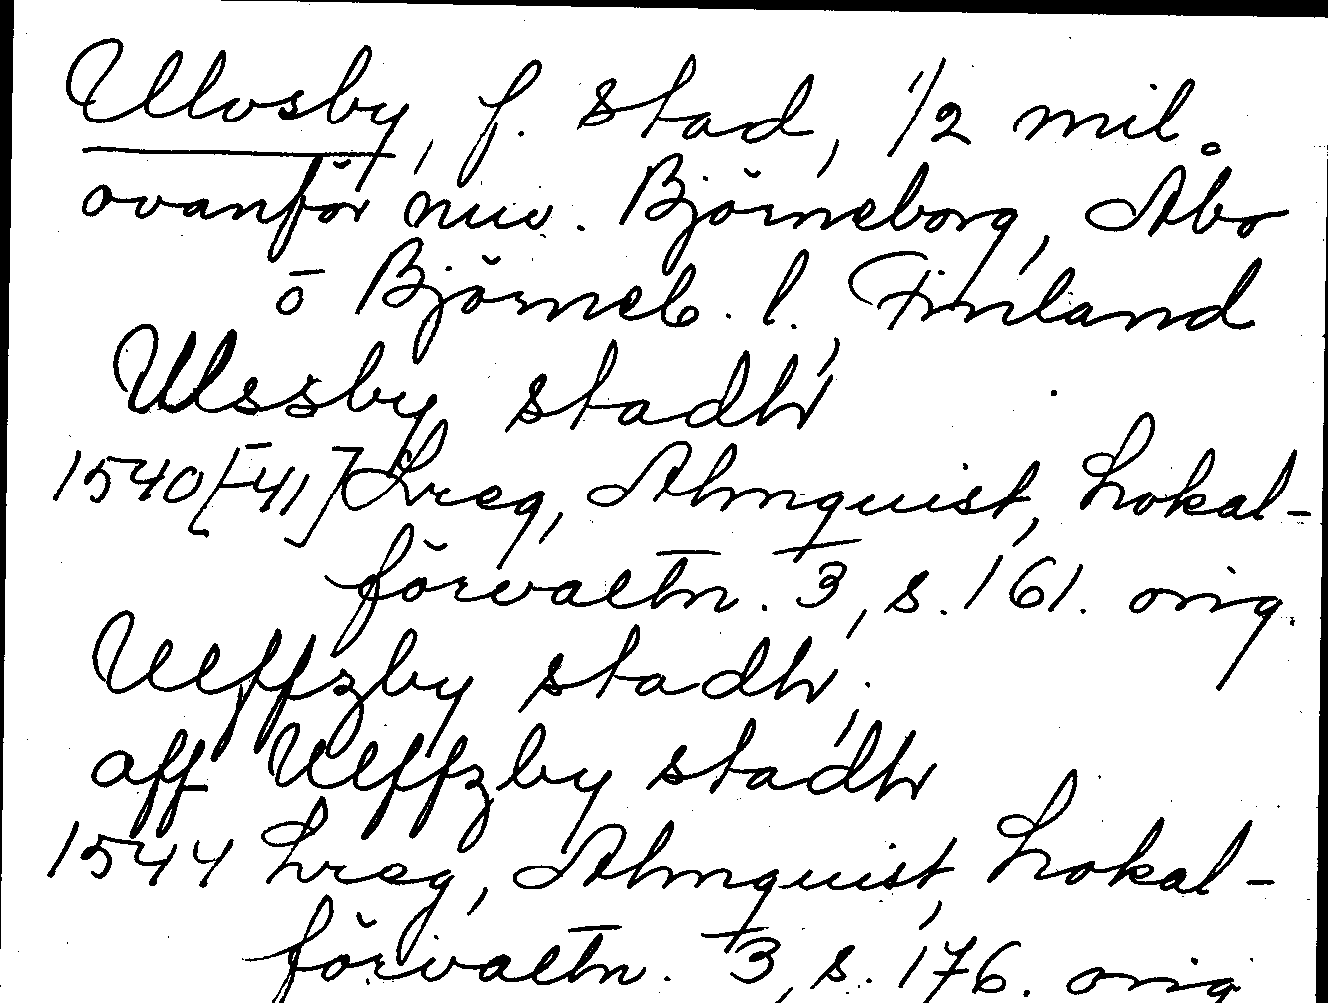 Ulvsby, f. stad, 1/2 mil
ovanför nuv. Björneborg, Åbo
o Björneb. l. Finland
Ulssby stadh
1540[-41] Lreg, Almquist, Lokal-
förvaltn. 3, s. 161. orig.
Ulffzby stadh,
aff Ulffzby stadh
1544 Lreg, Almquist, Lokal-
förvaltn. 3, s. 176. orig